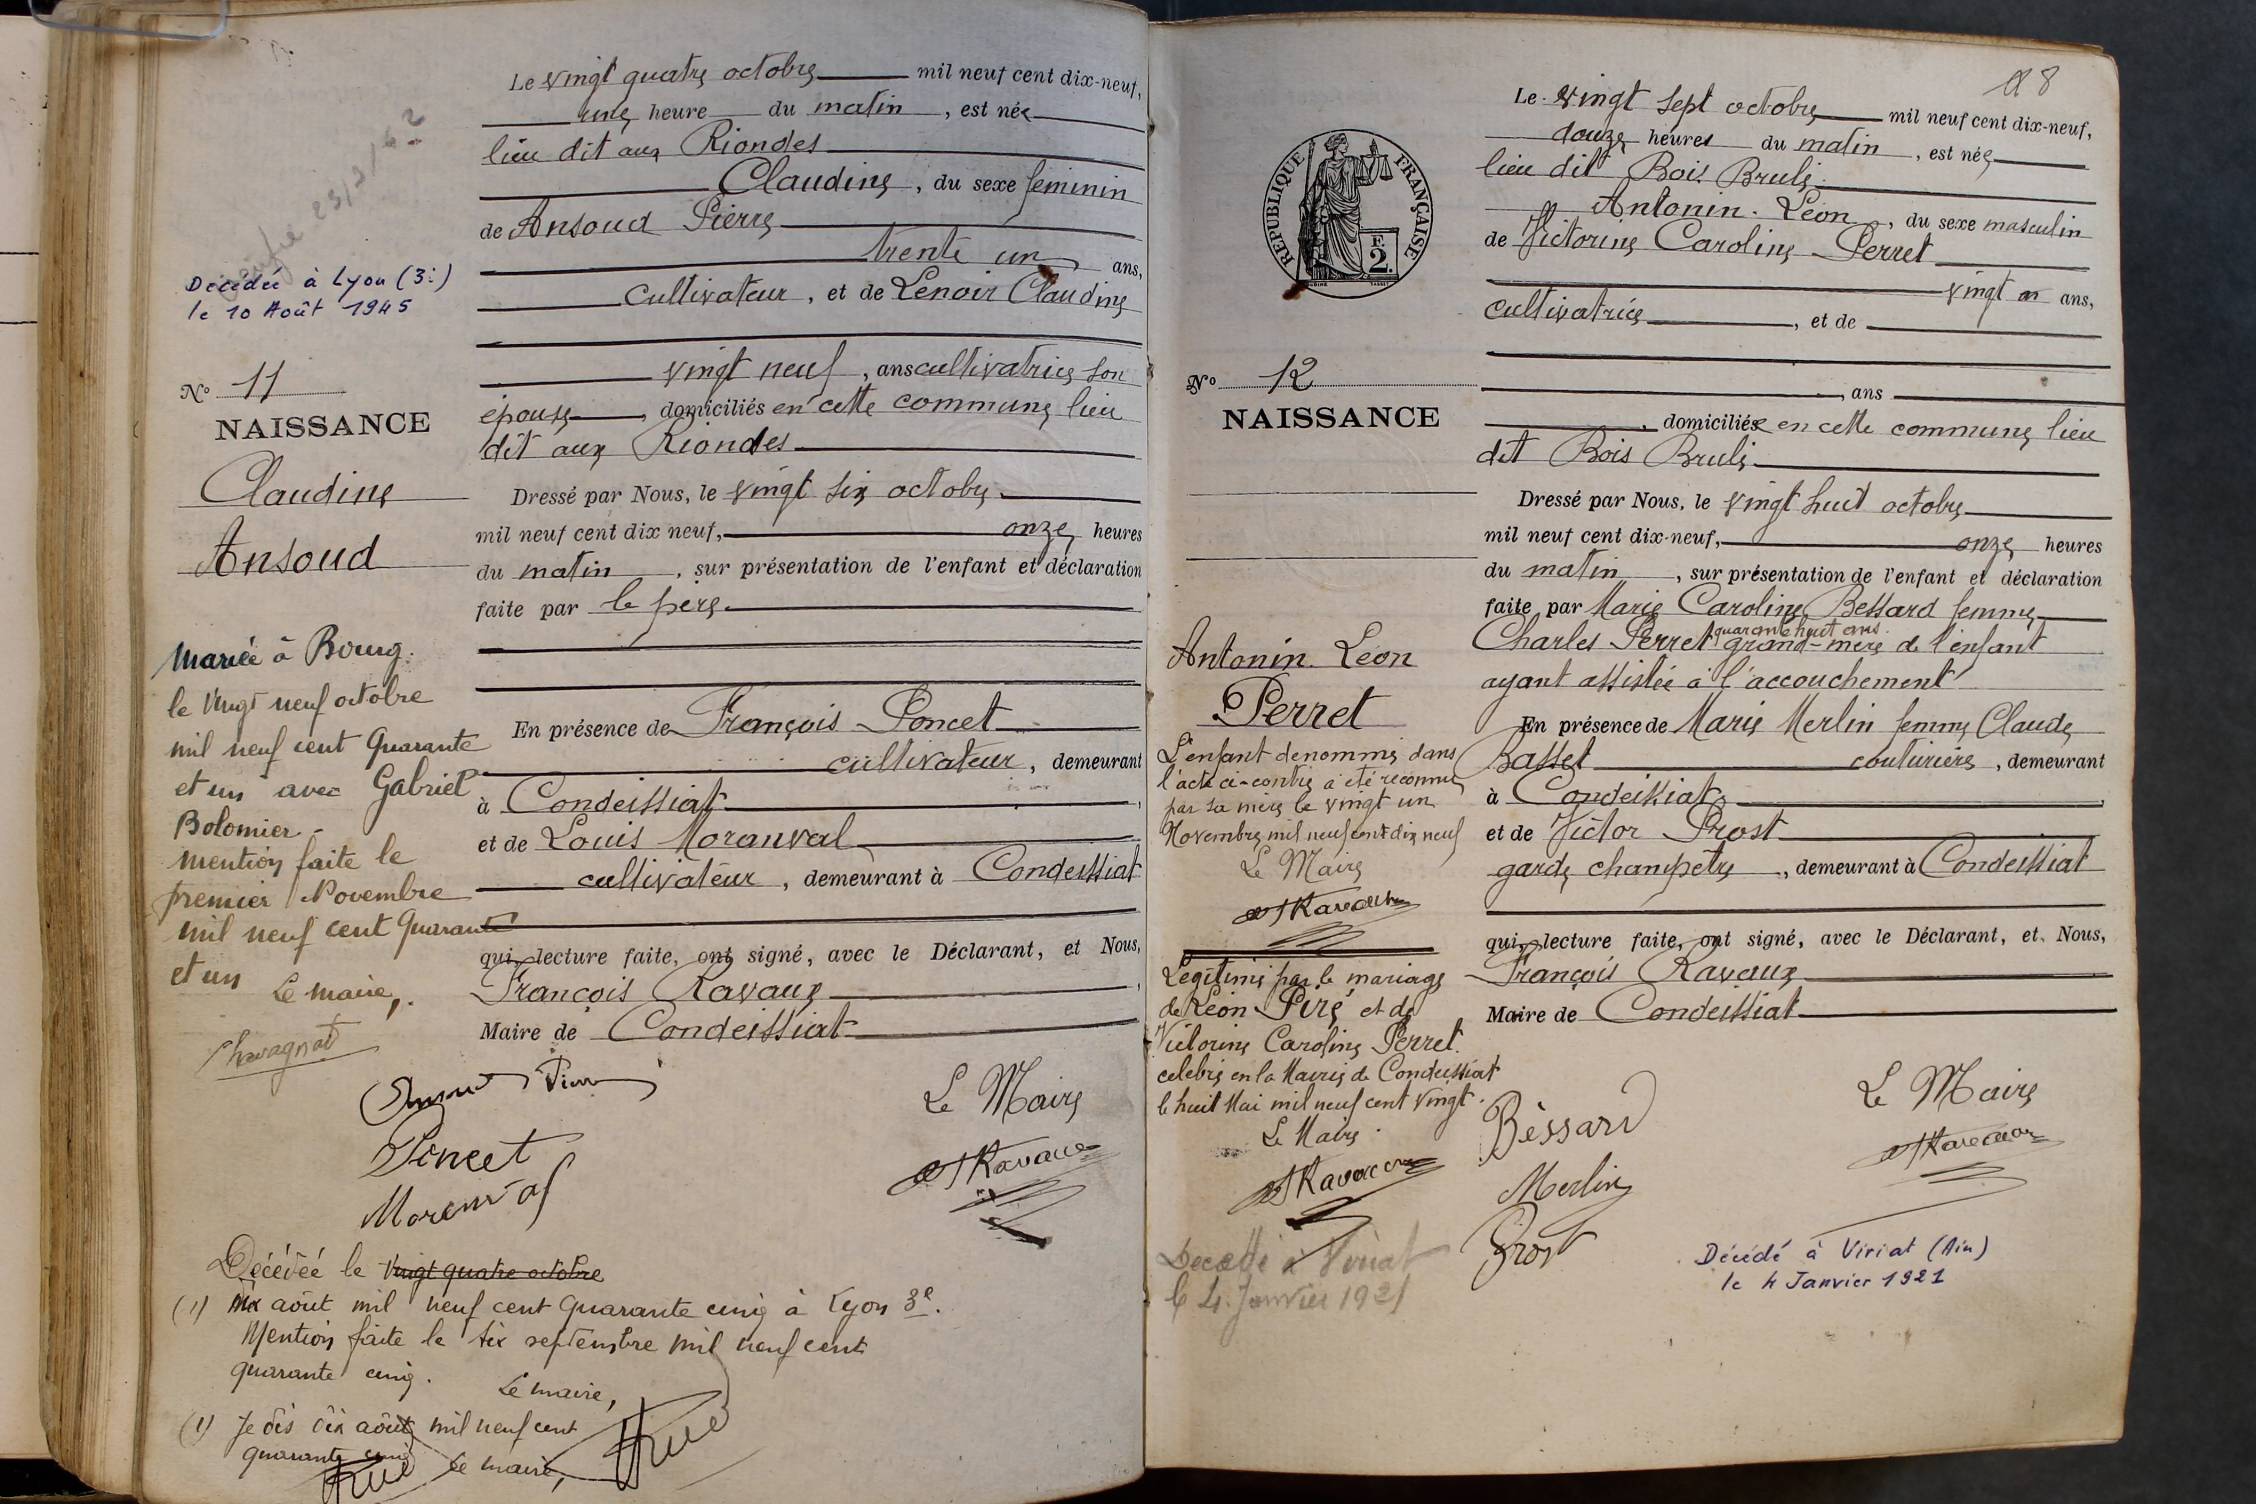 Le vingt quatre octobre mil neuf cent dix-neuf,
une heure du matin, est née
lieu dit aux Riondes
Claudine, du sexe feminin
de Ansoud Pierre
trente un ans,
cultivateur, et de Lenoir Claudine
vingt neuf, ans cultivatrice son
épouse, domiciliés en cette commune lieu
dit aux Riondes
Dressé par Nous, le vingt six octobre
mil neuf cent dix neuf, onze heures
du matin, sur présentation de l'enfant et déclaration
faite par le père.
En présence de François Poncet
cultivateur, demeurant
à Condeissiat,
et de Louis Moranval
cultivateur, demeurant à Condeissiat
qui, lecture faite, ont signé, avec le Déclarant, et Nous,
François Ravaux,
Maire de Condeissiat
23/2/62
Décédée à Lyon (3e)
le 10 Août 1945
No 11
NAISSANCE
Claudine
Ansoud
Mariée à Bourg.
le Vingt neuf octobre
mil neuf cent Quarante
et un avec Gabriel
Bolomier -
Mention faite le
premier Novembre
mil neuf cent Quarante
et un
Le maire,
Chavagnat
Pierre
Poncet
Moranval
Le Maire
Ravaux
Décédée le Vingt quatre octobre
(1) dix août mil neuf cent Quarante cinq à Lyon 3e.
Mention faite le six septembre mil neuf cent
quarante cinq.
Le maire,
(1) Je dis dix août mil neuf cent
quarante cinq
Le maire,
18
Le vingt sept octobre mil neuf cent dix-neuf,
douze heures du matin, est née
lieu dit Bois Brulé
Antonin. Léon, du sexe masculin
de Victorine Caroline Perret
vingt an ans,
cultivatrice, et de
, ans
, domiciliée en cette commune lieu
dit Bois Brulé
Dressé par Nous, le vingt huit octobre
mil neuf cent dix-neuf, onze heures
du matin, sur présentation de l'enfant et déclaration
faite par Marie Caroline Bessard femme
quarante huit ans.
Charles Perret grand-mère de l'enfant
ayant assistée à l'accouchement
En présence de Marie Merlin femme Claude
Basset couturière, demeurant
à Condeissiat,
et de Victor Prost
garde champetre, demeurant à Condeissiat
qui, lecture faite, ont signé, avec le Déclarant, et Nous,
François Ravaux
Maire de Condeissiat
RÉPUBLIQUE FRANÇAISE
F.
2.
No 12
NAISSANCE
Antonin. Léon
Perret
L'enfant denommé dans
l'acte ci-contre a été reconnu
par sa mère le vingt un
Novembre mil neuf cent dix neuf
Le Maire
Ravaux
Légitimé par le mariage
de Léon Piré et de
Victorine Caroline Perret.
celebré en la Mairie de Condeissiat
le huit Mai mil neuf cent vingt.
Le Maire.
Ravaux
Décédé à Viriat
le 4 Janvier 1921
Bessard
Merlin
Prost
Le Maire
Ravaux
Décédé à Viriat (Ain)
le 4 Janvier 1921